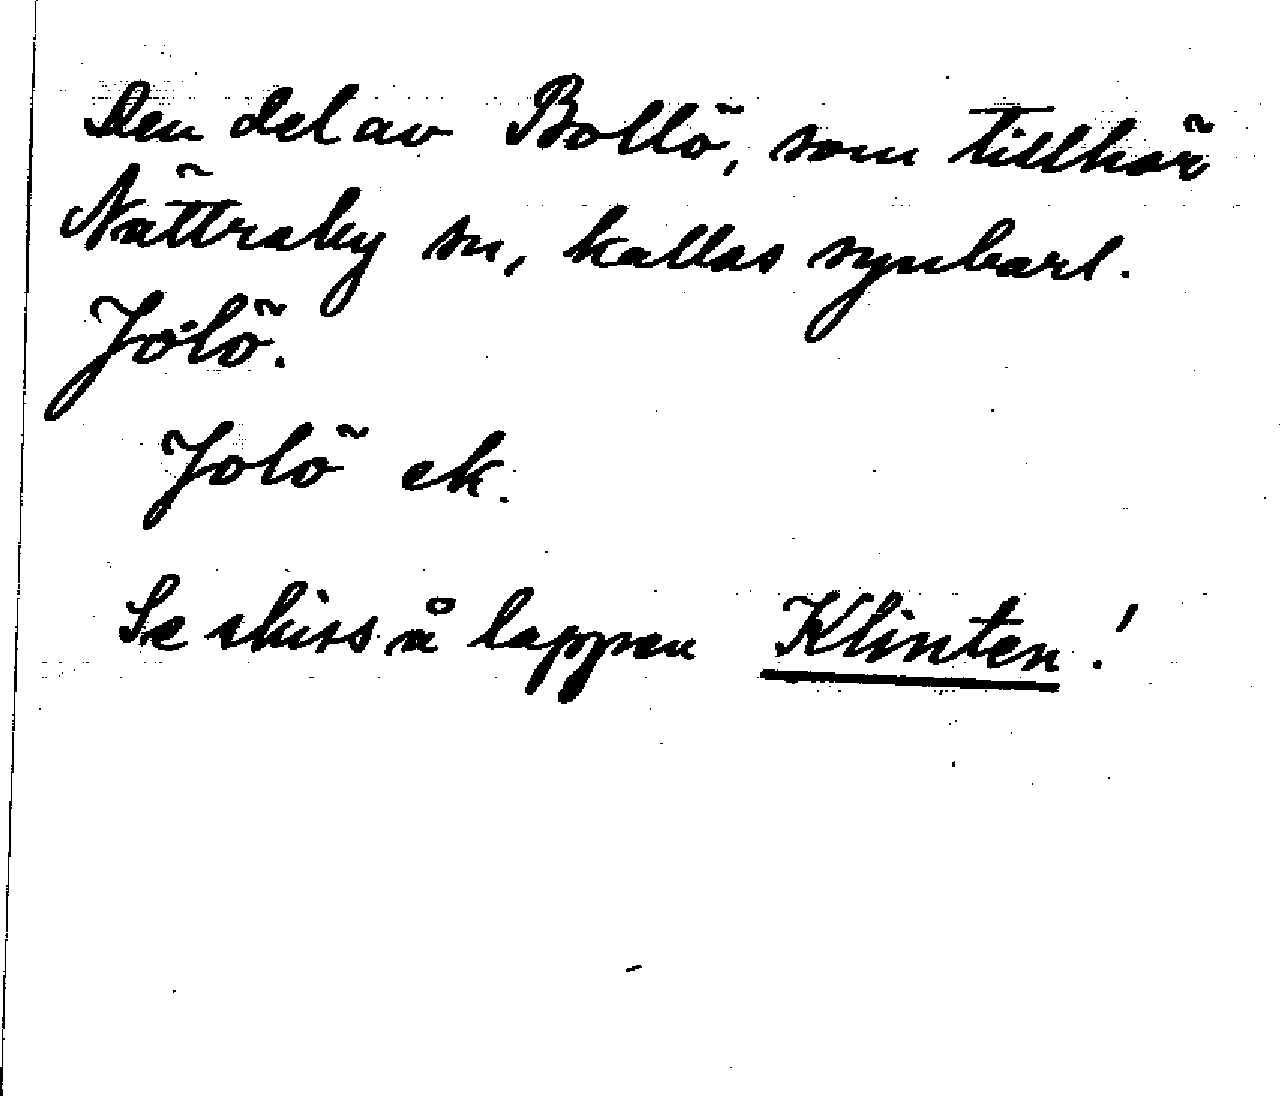 Den del av Bollö, som tillhör
Nättraby sn, kallas synbarl.
Jolö.
Jolö ek.
Se skiss å lappen Klinten!